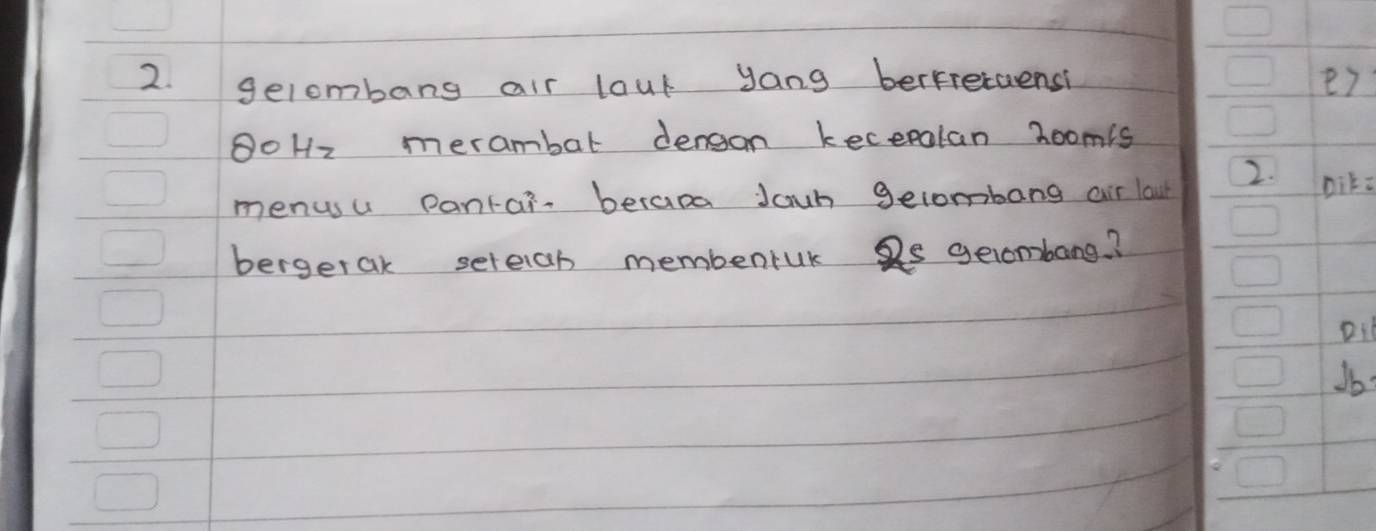 2. gelombang air laut yang berfrekuensi
80Hz merambat dengan kecepatan 200m/s
menuju pantai. berapa jauh gelombang air laut
bergerak setelah membentuk 25 gelombang?
2. Dik=
Jb: